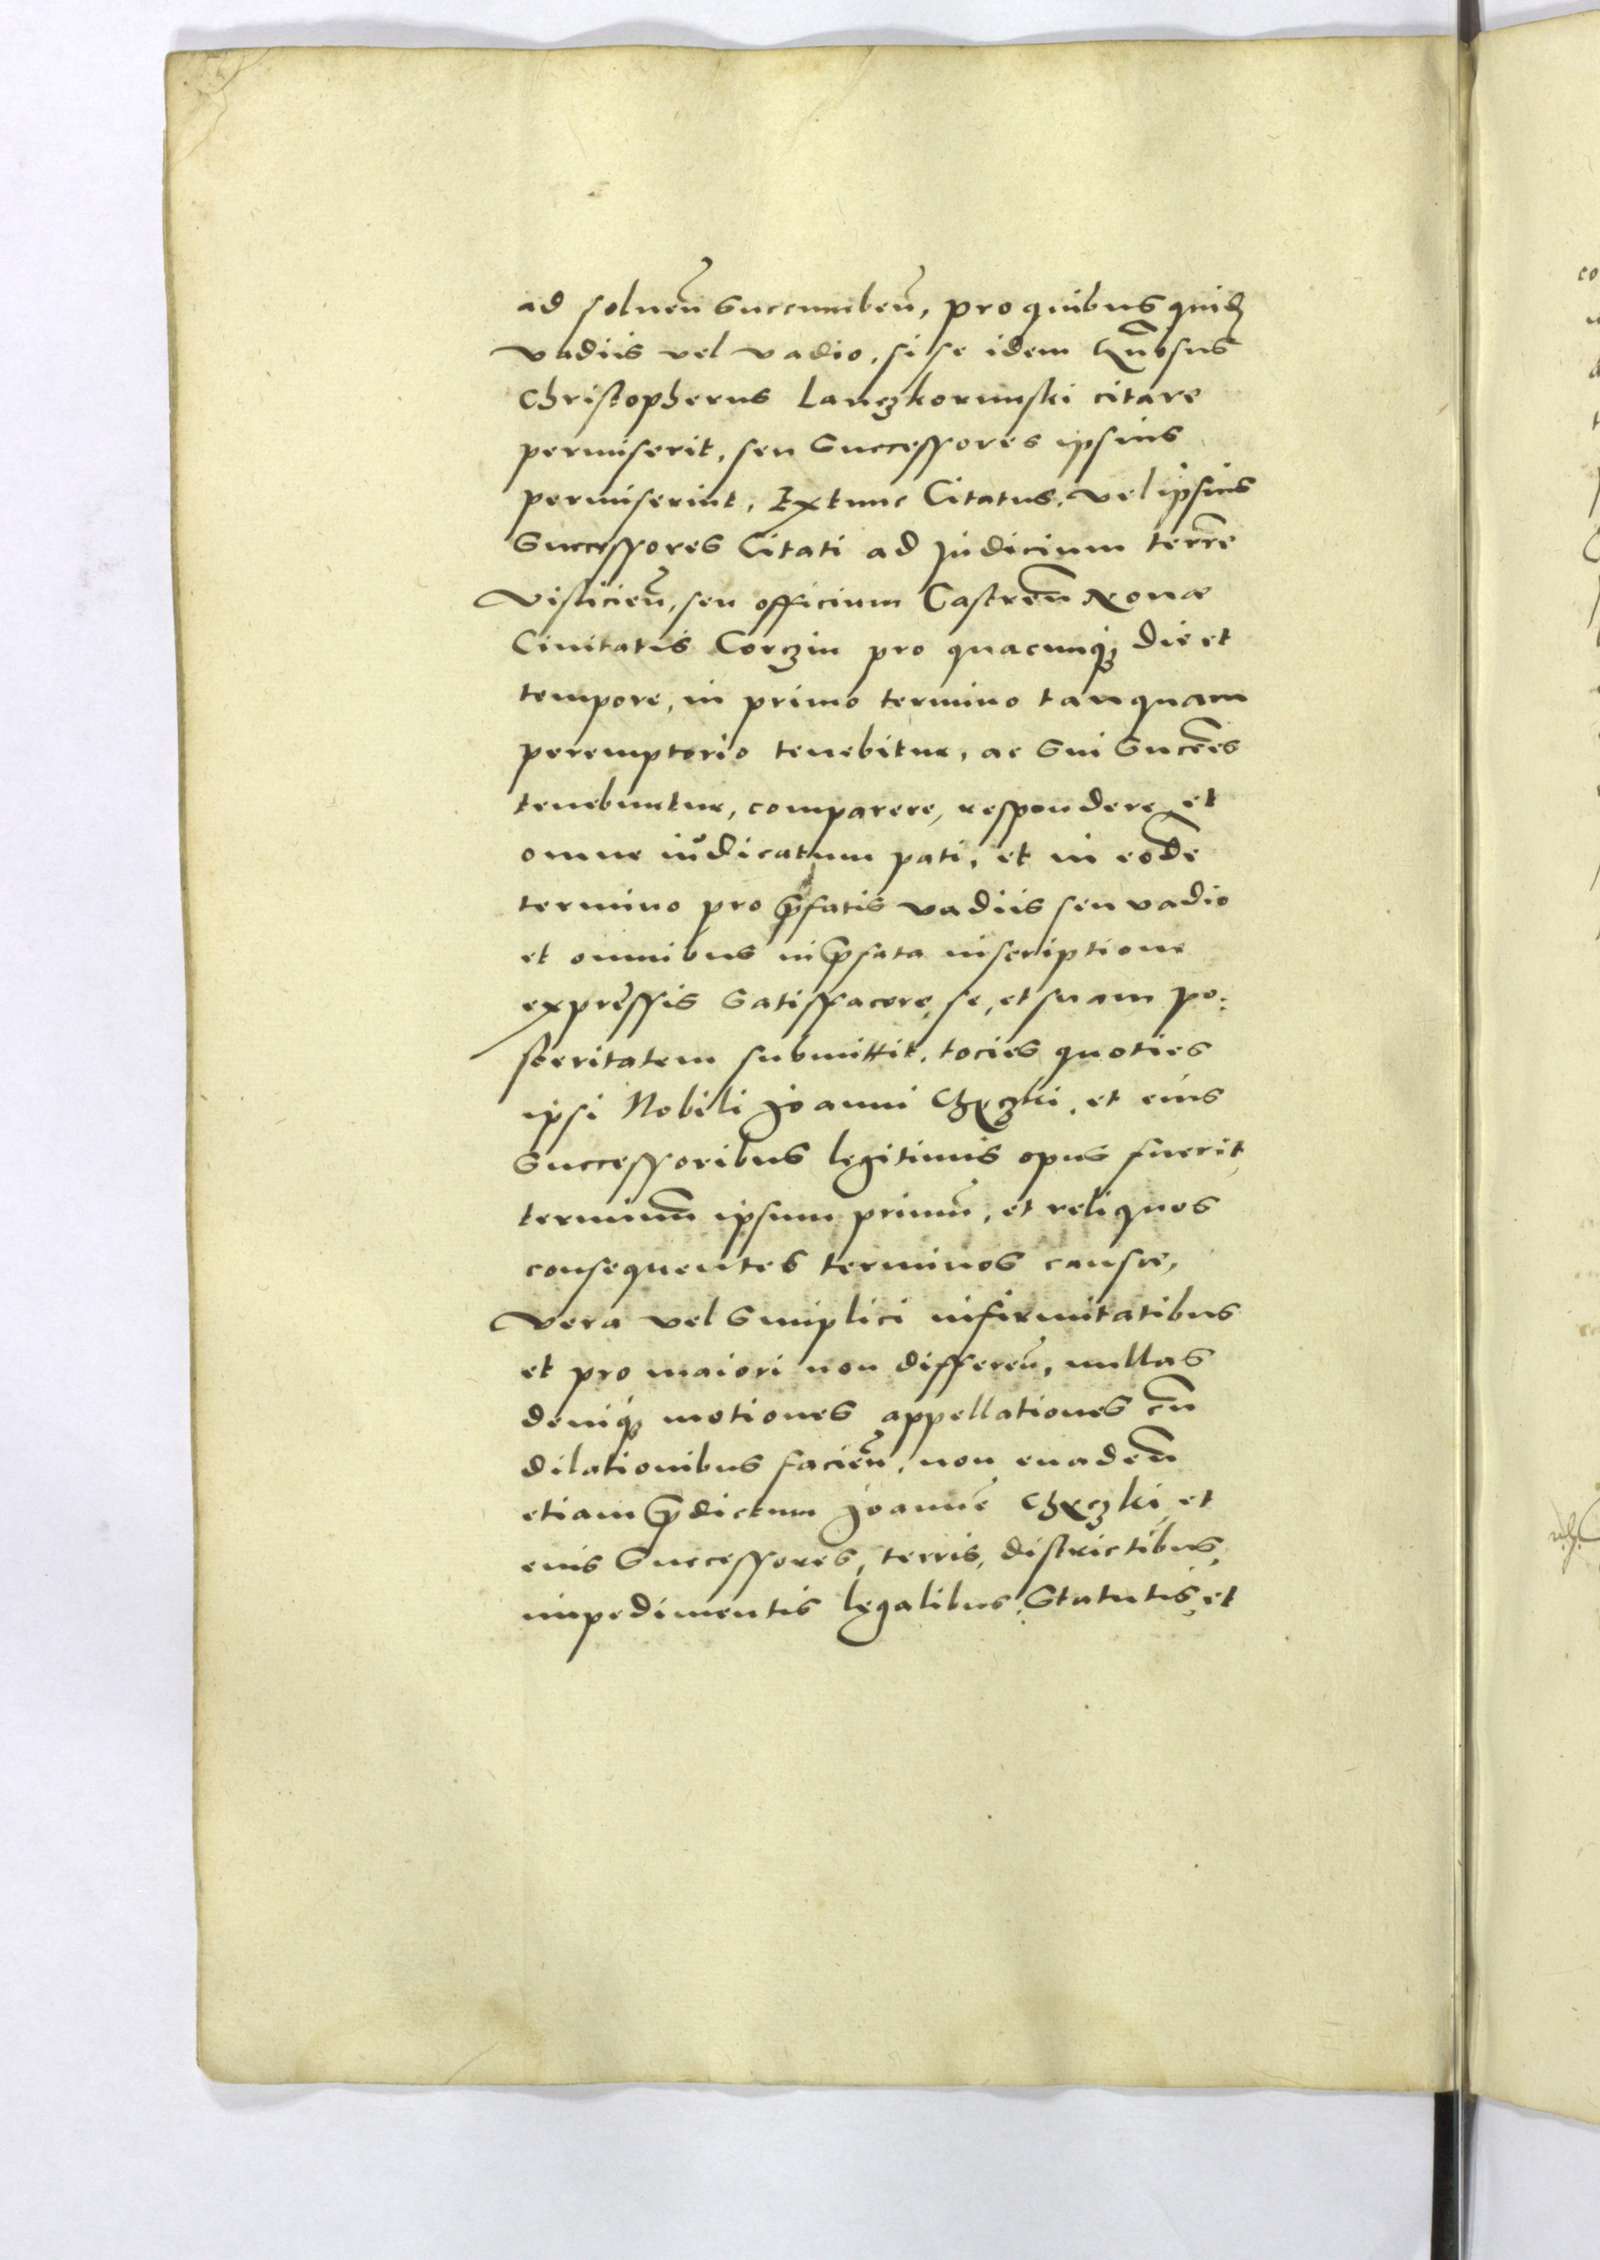 ad soluen̄ Succumben̄, pro quibus quid
vadiis vel vadio, si se idem
Christopherus Lanczkorunski citare
permiserit, seu Successores ipsius
permiserint, Extunc Citatus, vel ipsius
Successores Citati ad Judicium terrē
Vislicien̄, seu officium Castren̄ Nonæ
Ciuitatis Corczin pro quacunq₃ die et
tempore, in primo termino tanquam
peremptorio tenebitur, ac Sui Succēes
tenebuntur, comparere, respondere, et
omne iudicatum pati, et in eodē
termino pro p̄fatis vadiis seu vadio
et omnibus in p̄fata inscriptione
expressis Satisfacere, se, et suam po:
steritatem submittit, tocies quoties
ipsi Nobili Joanni Chęczki, et eius
Successoribus legitimis opus fuerit,
terminū ipsum primū, et reliquos
consequentes terminos causæ,
Vera vel Simplici infirmitatibus
et pro maiori non differen̄, nullas
deniq₃ motiones appellationes cū
dilationibus facien̄, non euaden̄
etiam p̄dictum Joannē Chęczki, et
eius Successores, terris, districtibus,
impedimentis legalibus, Statutis, et